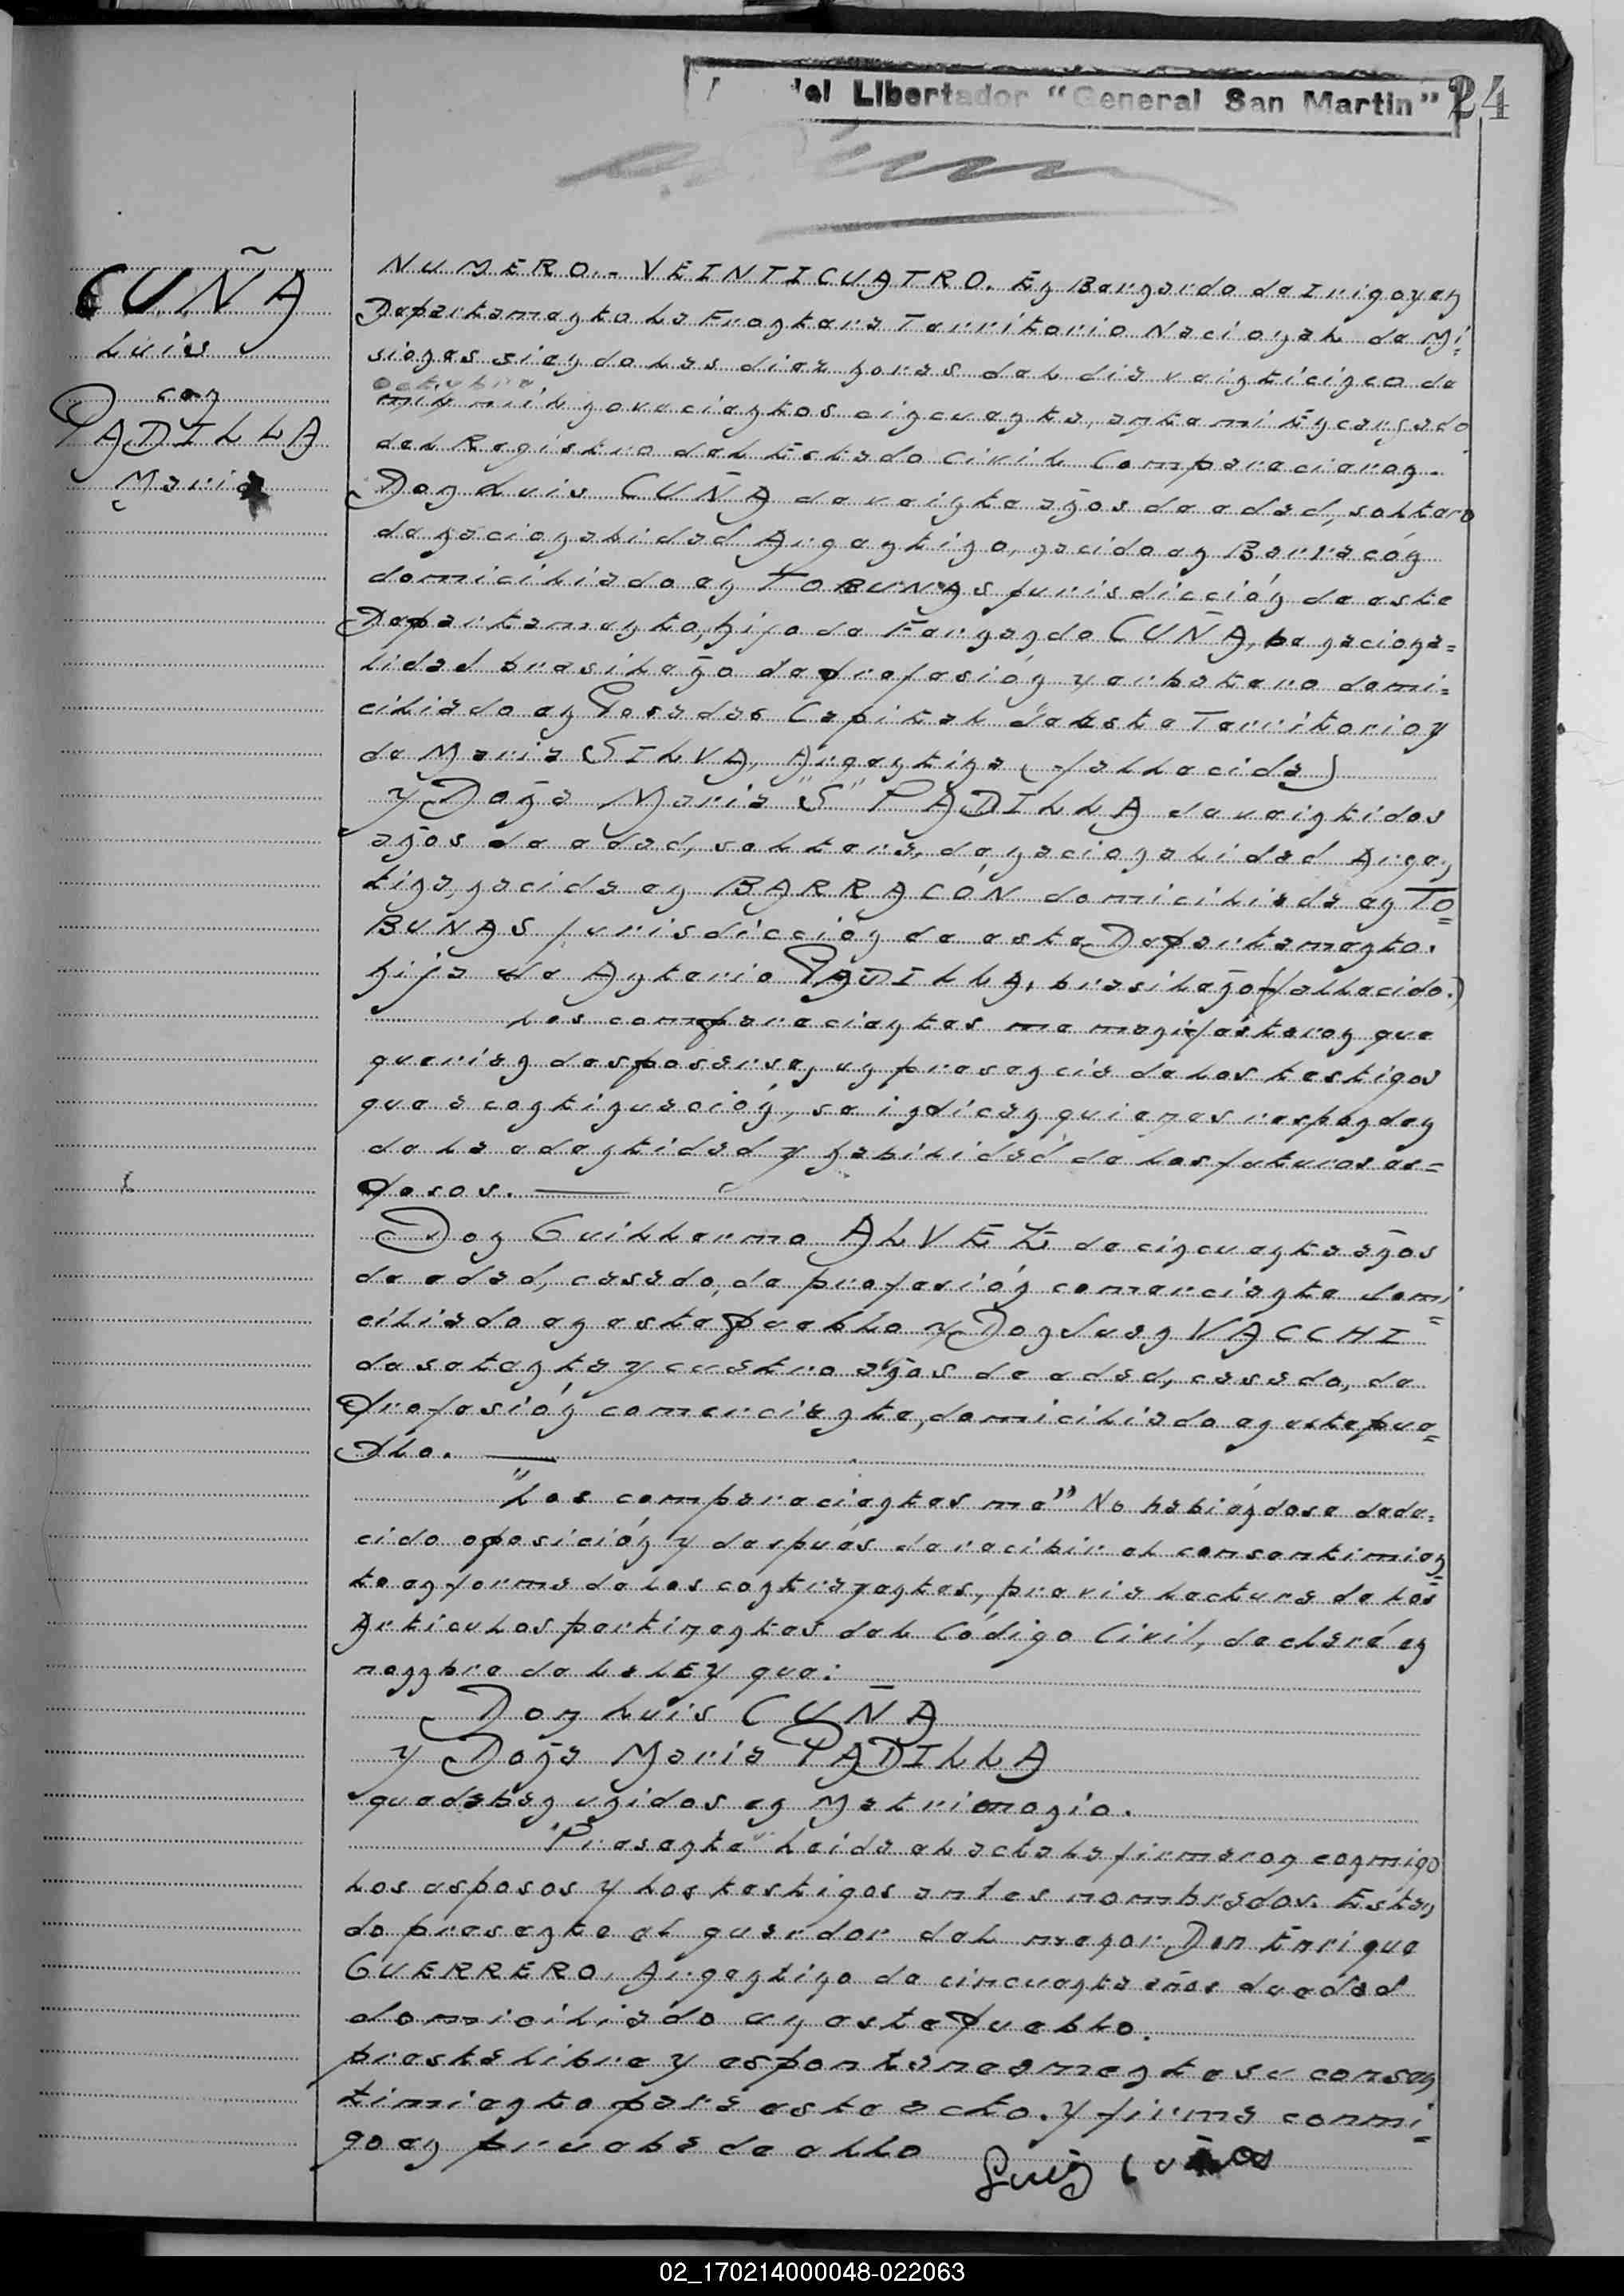 del Libertador "General San Martin"
24
CUÑA
Luis
con
PADILLA
Maria
NUMERO.- VEINTICUATRO. En Bernardo de Irigoyen
Departamento La Frontera Territorio Nacional de Mi=
siones siendo las diez horas del dia veinticinco de
octubre,
mil novecientos cincuenta, ante mi Encargado
del Registro del Estado Civil Comparecieron.
Don Luis CUÑA de veinte años de edad, soltero
de nacionalidad Argentino, nacido en Barracón
domiciliado en TOBUNAS jurisdicción de este
Departamento, hijo de Fernando CUÑA, de naciona=
lidad brasileño de profesión yerbatero domi=
ciliado en Posadas Capital de este Territorio y
de Maria SILVA, Argentina (fallecida)
y Doña Maria "S" PADILLA de veintidos
años de edad, soltera, de nacionalidad Argen
tina, nacida en BARRACÓN domiciliada en TO=
BUNAS jurisdicción de este Departamento.
hija de Anterio PADILLA, brasileño (fallecido.)
Los comparecientes me manifestaron que
querian desposarse, en presencia de los testigos
que a continuación, se indican quienes responden
de la edentidad y habilidad de los futuros es=
posos.
Don Guillermo ALVEZ de cincuenta años
de edad, casado, de profesión comerciante domi=
ciliado en este pueblo y Don Juan VACCHI
de setenta y cuatro años de edad, casado, de
profesión comerciante, domiciliado en este pue=
blo.
"Los comparecientes me" No habiéndose dedu=
cido oposición y después de recibir el consentimien=
to en forma de los contrayentes, previa lectura de los
Articulos pertinentes del Código Civil, declaré en
nombre de la LEY que:
Don Luis CUÑA
y Doña Maria PADILLA
quedaban unidos en Matrimonio.
"Presente" Leida el acta la firmaron conmigo
los esposos y los testigos antes nombrados. Estan
do presente el guardor del menor Don Enrique
GUERRERO, Argentino de cincuenta años de edad
domiciliado en este pueblo.
presta libre y espontaneamente su consen
timiento para este acto. y firma conmi=
go en prueba de ello
Luis Cuñas
02_170214000048-022063